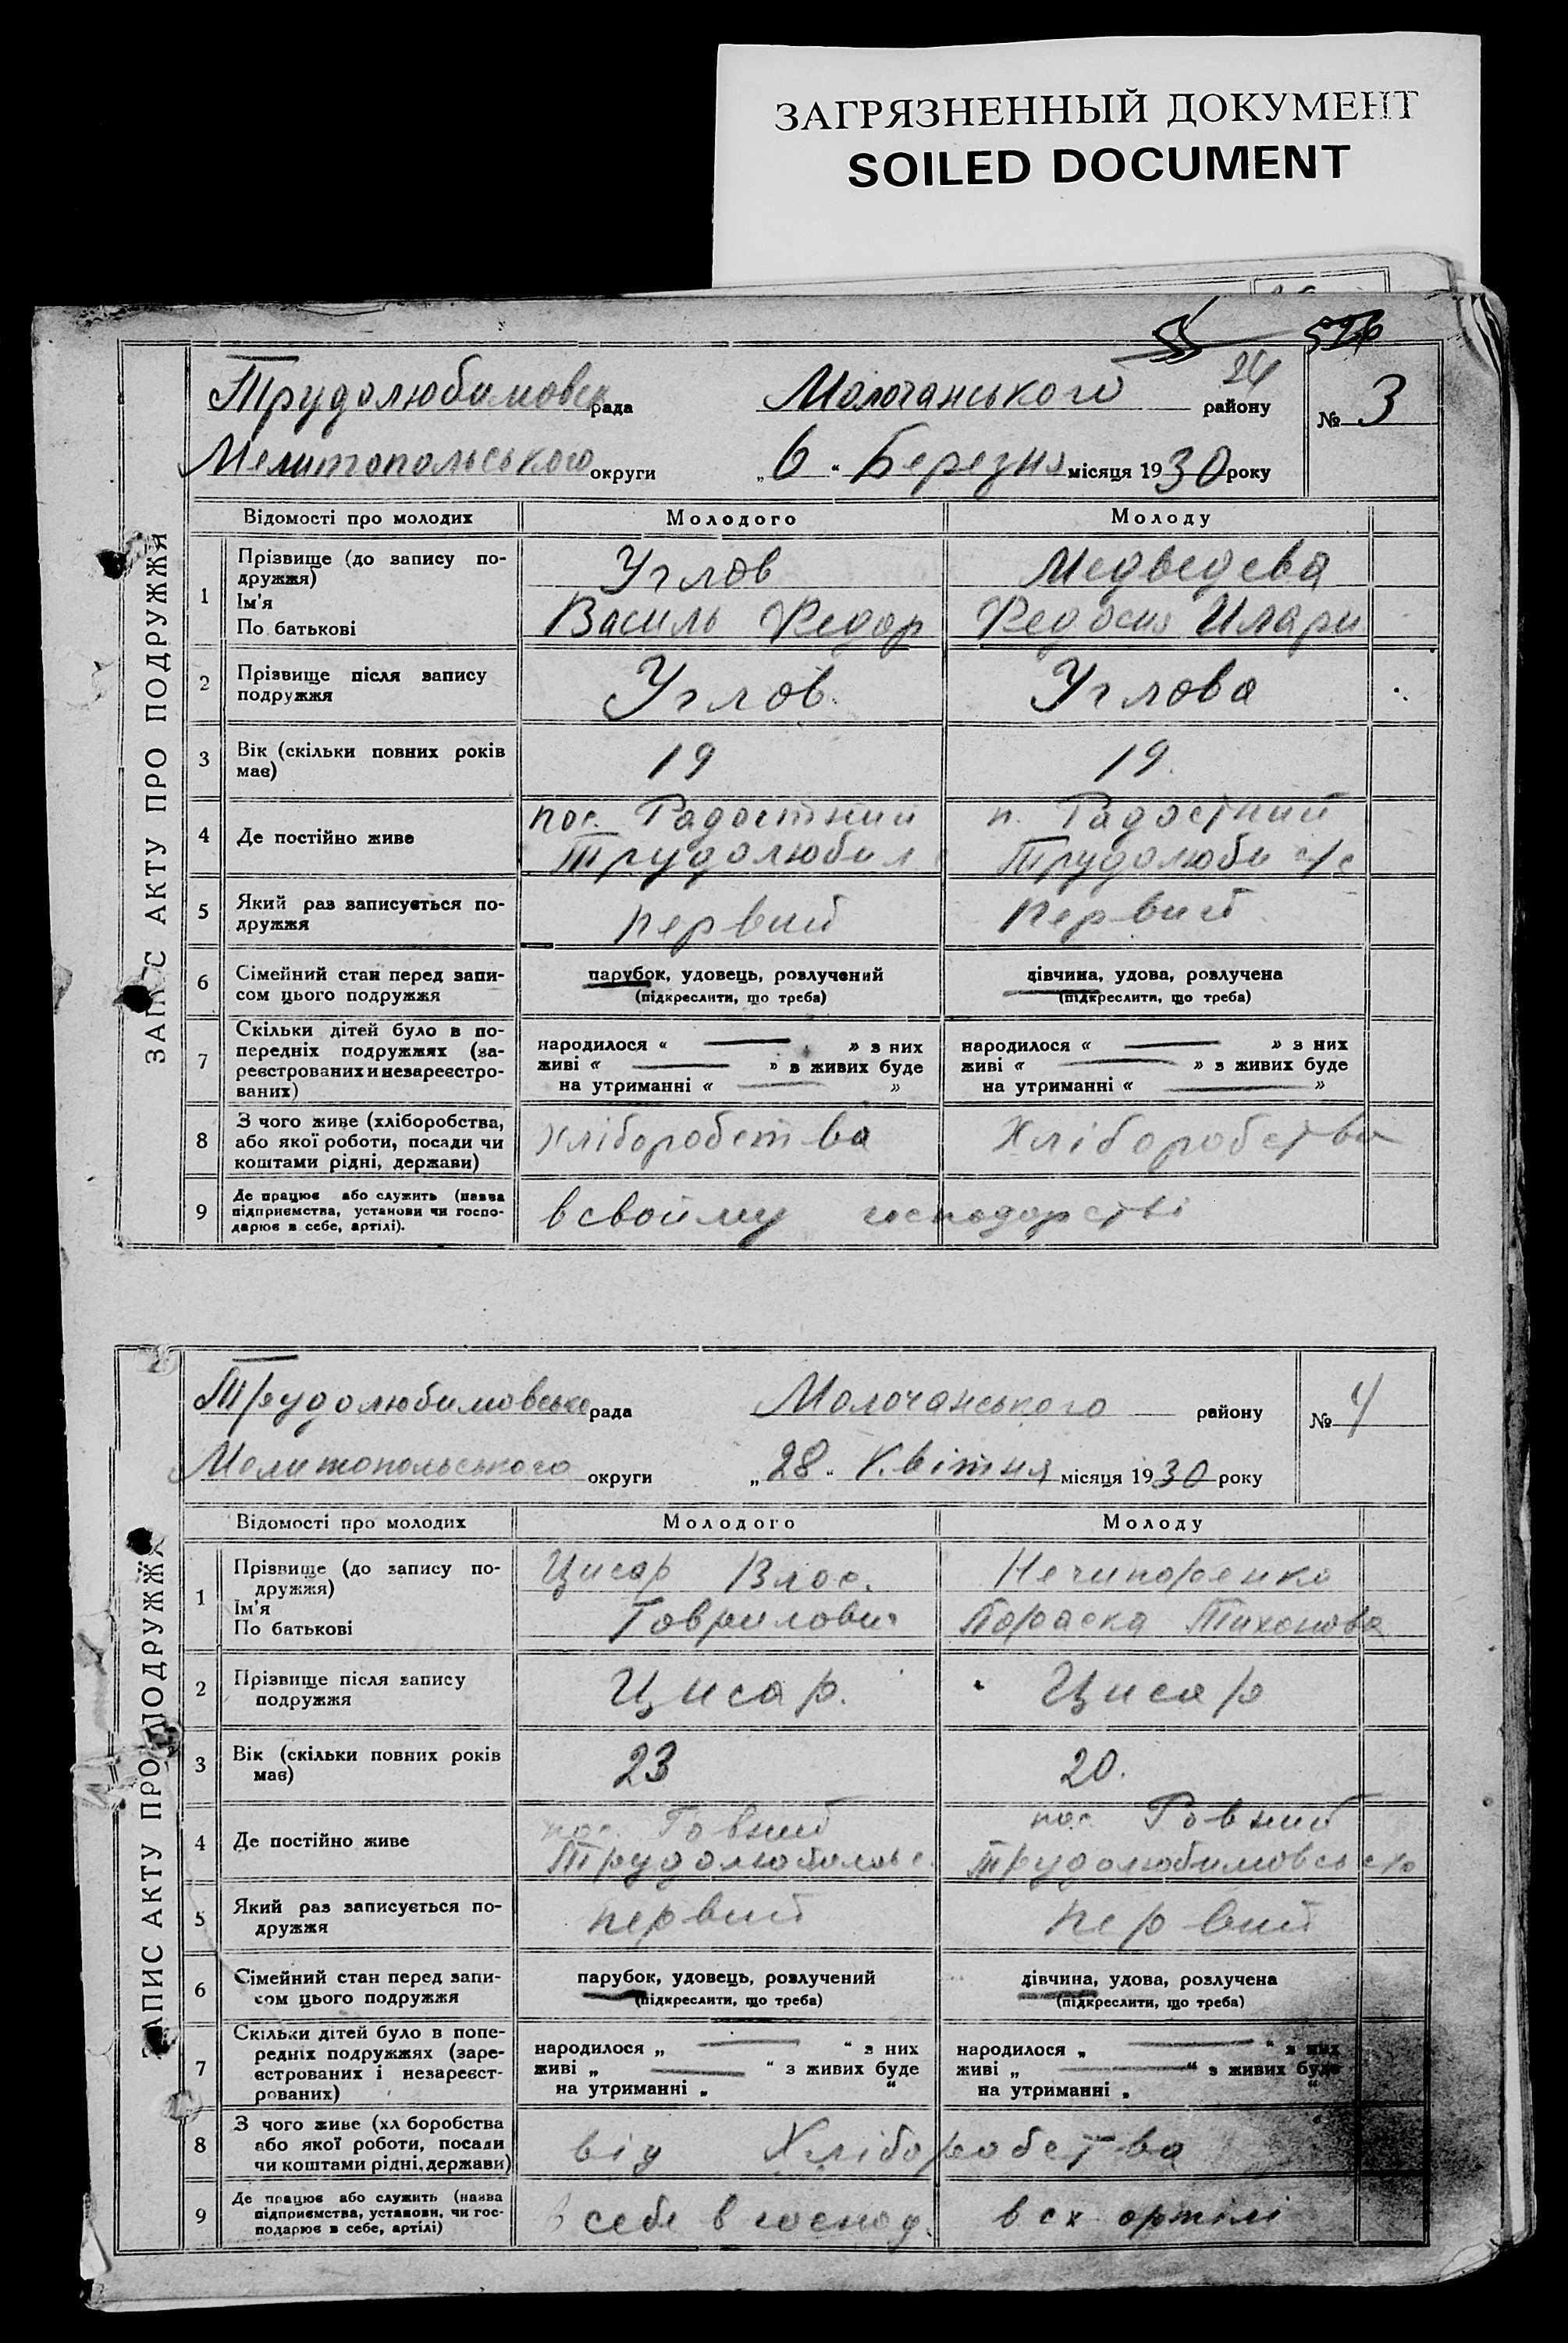 ЗАГРЯЗНЕННЫЙ ДОКУМЕНТ
SOILED DOCUMENT
55
24
Трудолюбимовск рада Молочанського району № 3
Мелитопольського округи „6“ Березня місяця 1930 року
ЗАПИС АКТУ ПРО ПОДРУЖЖЯ
Відомості про молодих Молодого Молоду
1 Прізвище (до запису подружжя) Углов Медведева
Ім'я
По батькові Василь Федор Федосия Илари
2 Прізвище після запису
подружжя Углов. Углова
3 Вік (скільки повних років
має) 19 19.
4 Де постійно живе пос. Радостний п. Радостний
Трудолюбим Трудолюби с/с
5 Який раз записується по-
дружжя первий первий
6 Сімейний стан перед запи- парубок, удовець, розлучений дівчина, удова, розлучена
сом цього подружжя (підкреслити, що треба) (підкреслити, що треба)
7 Скільки дітей було в по-
передніх подружжях (за- народилося « » з них народилося « » з них
реєстрованих и незареєстро- живі « » з живих буде живі « » з живих буде
ваних) на утриманні « » на утриманні « »
8 З чого живе (хліборобства,
або якої роботи, посади чи хліборобства Хліборобства
коштами рідні, держави)
9 Де працює або служить (назва
підприємства, установи чи госпо- в свойму господарстві
дарює в себе, артілі).
Трудолюбимовсько рада Молочанського району № 4
Мелитопольського округи „28“ Квітня місяця 1930 року
ЗАПИС АКТУ ПРО ПОДРУЖЖЯ
Відомості про молодих Молодого Молоду
1 Прізвище (до запису по- Цисар Влас. Нечипоренко
дружжя)
Ім'я
По батькові Гаврилович Параска Тихонова
2 Прізвище після запису
подружжя Цисар. Цисар
3 Вік (скільки повних років
має) 23 20.
4 Де постійно живе пос. Ровний пос. Ровний
Трудолюбимовс. Трудолюбимовсь
5 Який раз записується по-
дружжя первий первий
6 Сімейний стан перед запи- парубок, удовець, розлучений дівчина, удова, розлучена
сом цього подружжя (підкреслити, що треба) (підкреслити, що треба)
7 Скільки дітей було в попе-
редніх подружжях (заре- народилося „ “ з них народилося „ “ з них
єстрованих і незареєст- живі „ “ з живих буде живі „ “ з живих буде
рованих) на утриманні „ “ на утриманні „ “
8 З чого живе (хл боробства
або якої роботи, посади від Хліборобства
чи коштами рідні, держави)
9 Де працює або служить (назва
підприємства, установи, чи гос- в себе в господ. в сх артілі
подарює в себе, артілі)